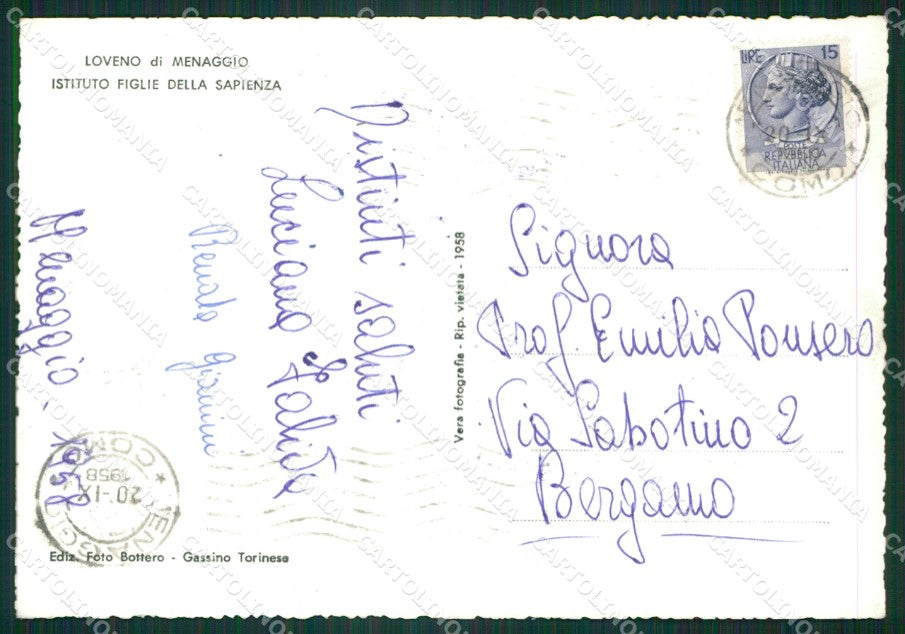 LOVENO di MENAGGIO
ISTITUTO FIGLIE DELLA SAPIENZA
Distinti saluti
Luciana
Renata
Menaggio, 1958
Ediz. Foto Bottero - Gassino Torinese
Vera fotografia - Rip. vietata - 1958
LIRE 15
POSTE
REPVBBLICA
ITALIANA
20-IX
COMO
Signora
Prof. Emilia Ponsero
Via Sabotino 2
Bergamo
MENAGGIO
20-IX
1958
COMO
CARTOLINOMANIA